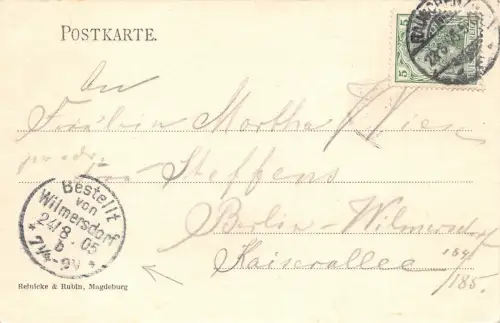 POSTKARTE.
5 5
An
Fräulein Martha Wien
Steffens
Berlin-Wilmersdorf
Kaiserallee 184/185.
Bestellt
von
Wilmersdorf
24/8 05
b
* 7¼-9V *
Reinicke & Rubin, Magdeburg